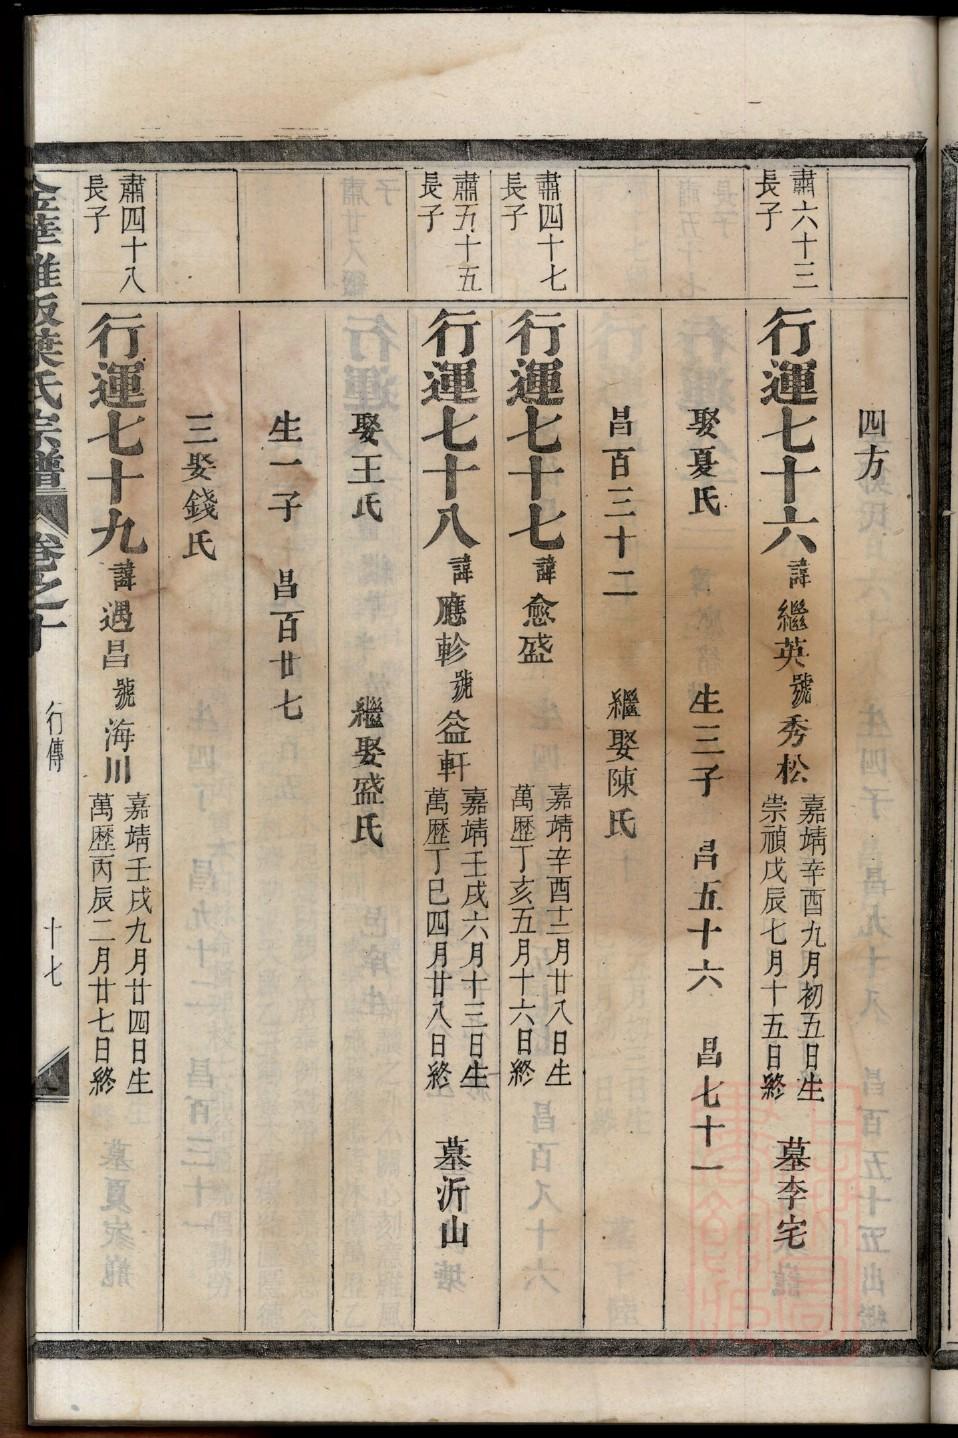 四方
肅六十三
長子
行運七十六 諱繼英 號秀松 嘉靖辛酉九月初五日生
崇禎戊辰七月十五日終 墓李宅
娶夏氏 生三子 昌五十六 昌七十一
昌百三十二 繼娶陳氏
肅四十七
長子
行運七十七 諱愈盛 嘉靖辛酉十二月廿八日生
萬歷丁亥五月十六日終
肅五十五
長子
行運七十八 諱應軫 號益軒 嘉靖壬戌六月十三日生
萬歷丁巳四月廿八日終 墓沂山
娶王氏 繼娶盛氏
生一子 昌百廿七
三娶錢氏
肅四十八
長子
行運七十九 諱遇昌 號海川 嘉靖壬戌九月廿四日生
萬歷丙辰二月廿七日終
葉氏宗譜 卷之十 行傳 十七